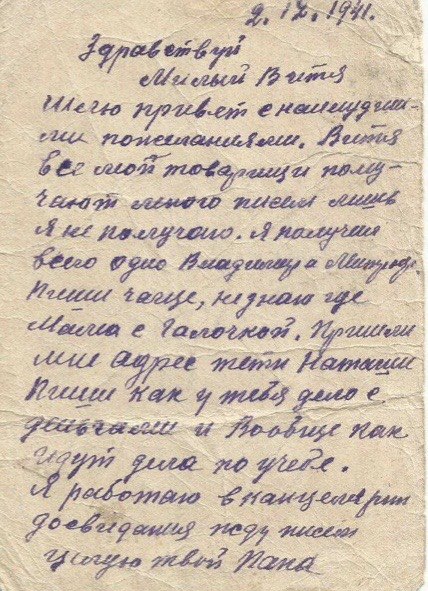 2.IX.1941.
Здравствуй
Милый Витя
Шлю привет с наилудши-
ми пожеланиями. Витя
все мои товарищи полу-
чают много писем лишь
я не получаю. Я получил
всего одно Владимира
Пиши чаще, незнаю где
Мама с Галочкой. Пришли
мне адрес тети Наташи
Пиши как у тебя дело с
деньгами и вообще как
идут дела по учебе.
Я работаю в канцелярии
досвидания жду писем
целую твой Папа